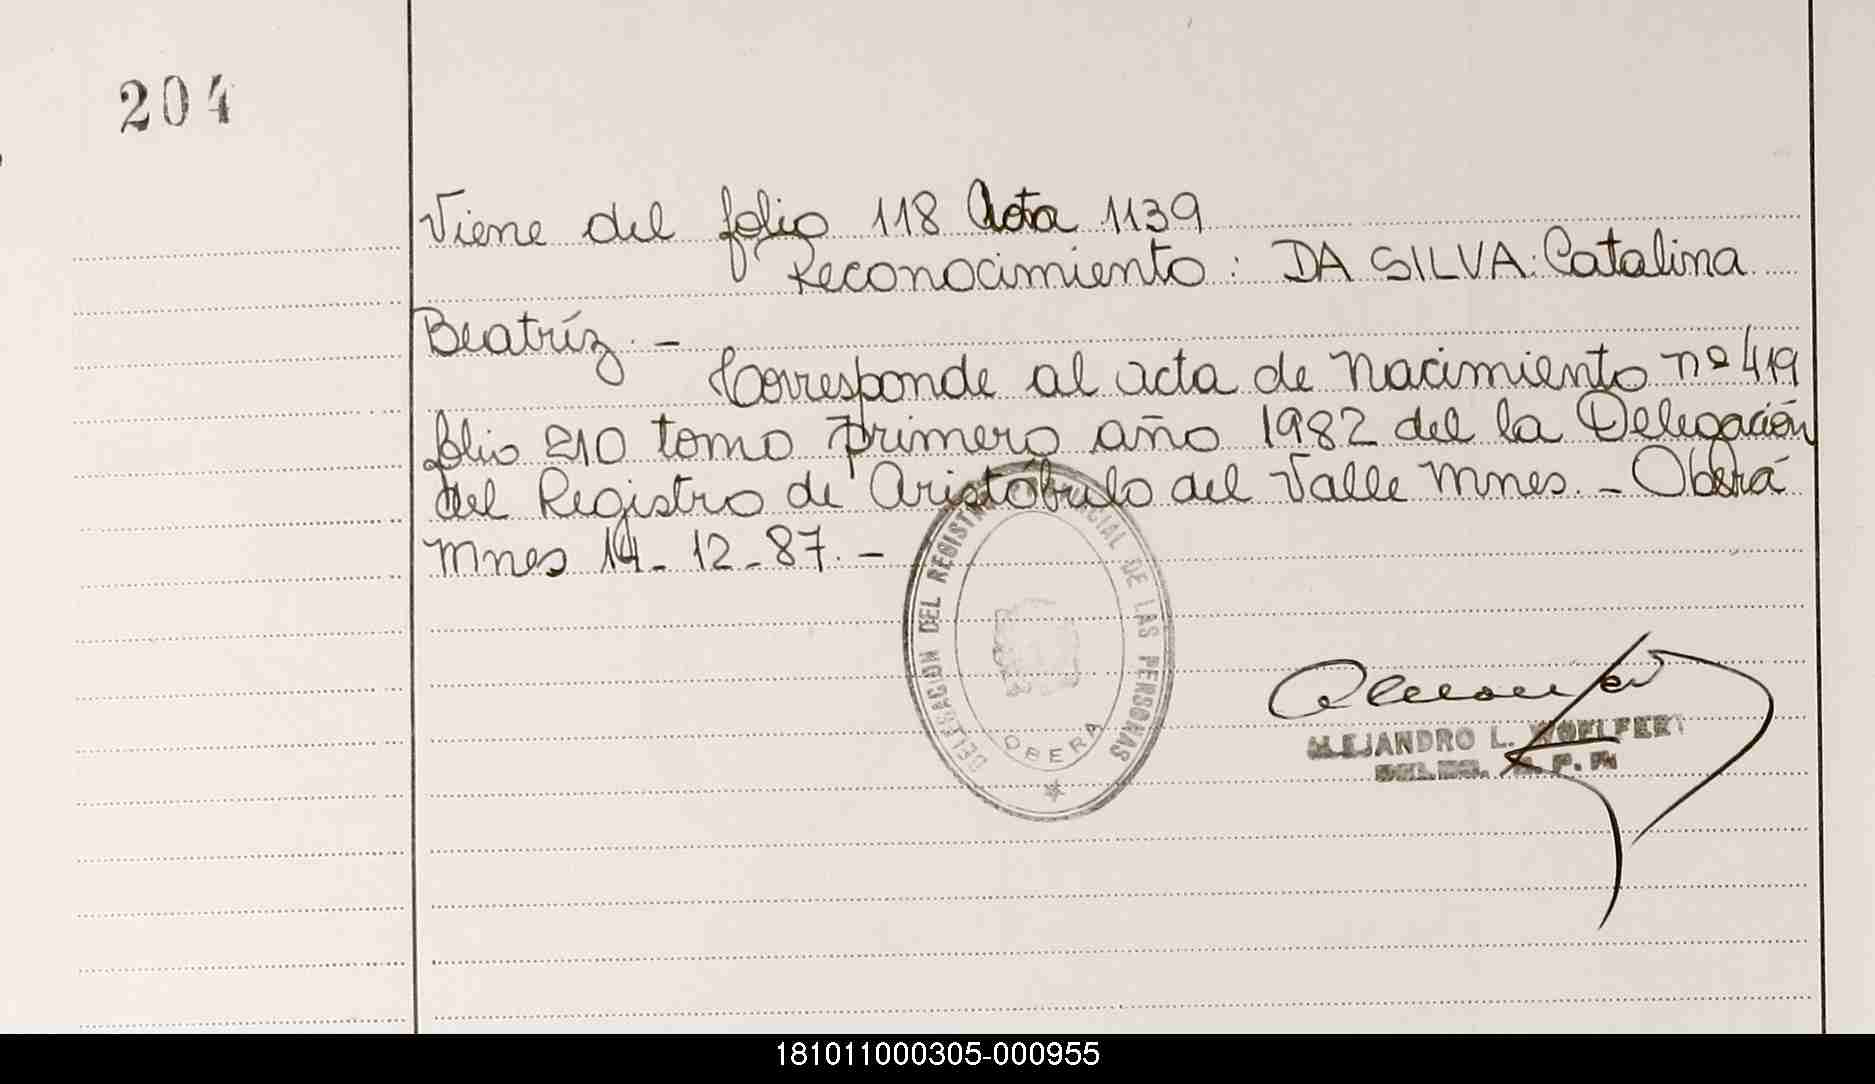 204
Viene del folio 118 Acta 1139
Reconocimiento: DA SILVA: Catalina
Beatríz. -
Corresponde al acta de Nacimiento nº 419
folio 210 tomo primero año 1982 del la Delegación
del Registro de Aristóbulo del Valle Mnes. - Oberá
Mnes 14-12-87. -
DELEGACION DEL REGISTRO PROVINCIAL DE LAS PERSONAS
OBERA
ALEJANDRO L. WOELFERT
181011000305-000955